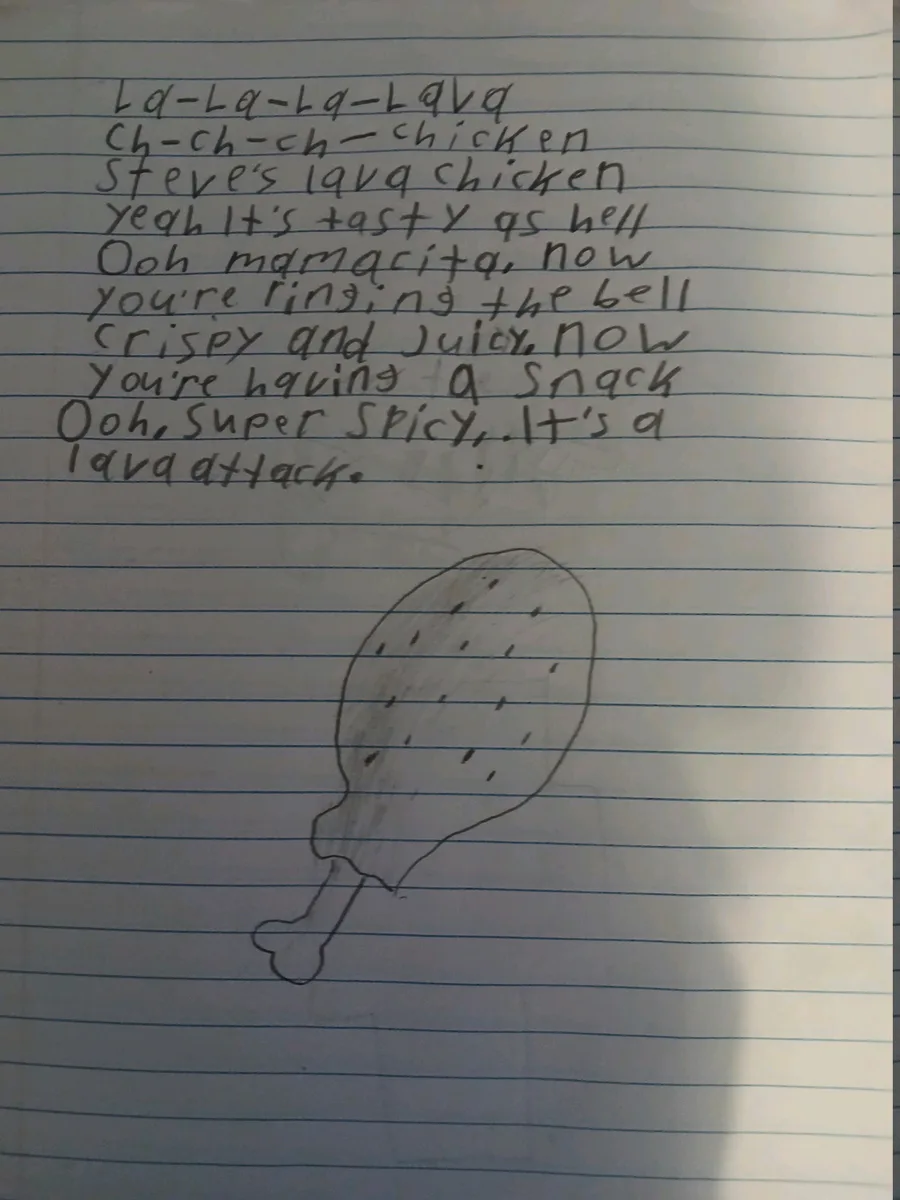 La-La-La-Lava
Ch-Ch-ch-chicken
Steve's lava chicken
Yeah It's tasty as hell
Ooh mamacita, now
you're ringing the bell
Crispy and Juicy, now
you're having a snack
Ooh, super spicy,. It's a
lava attack.